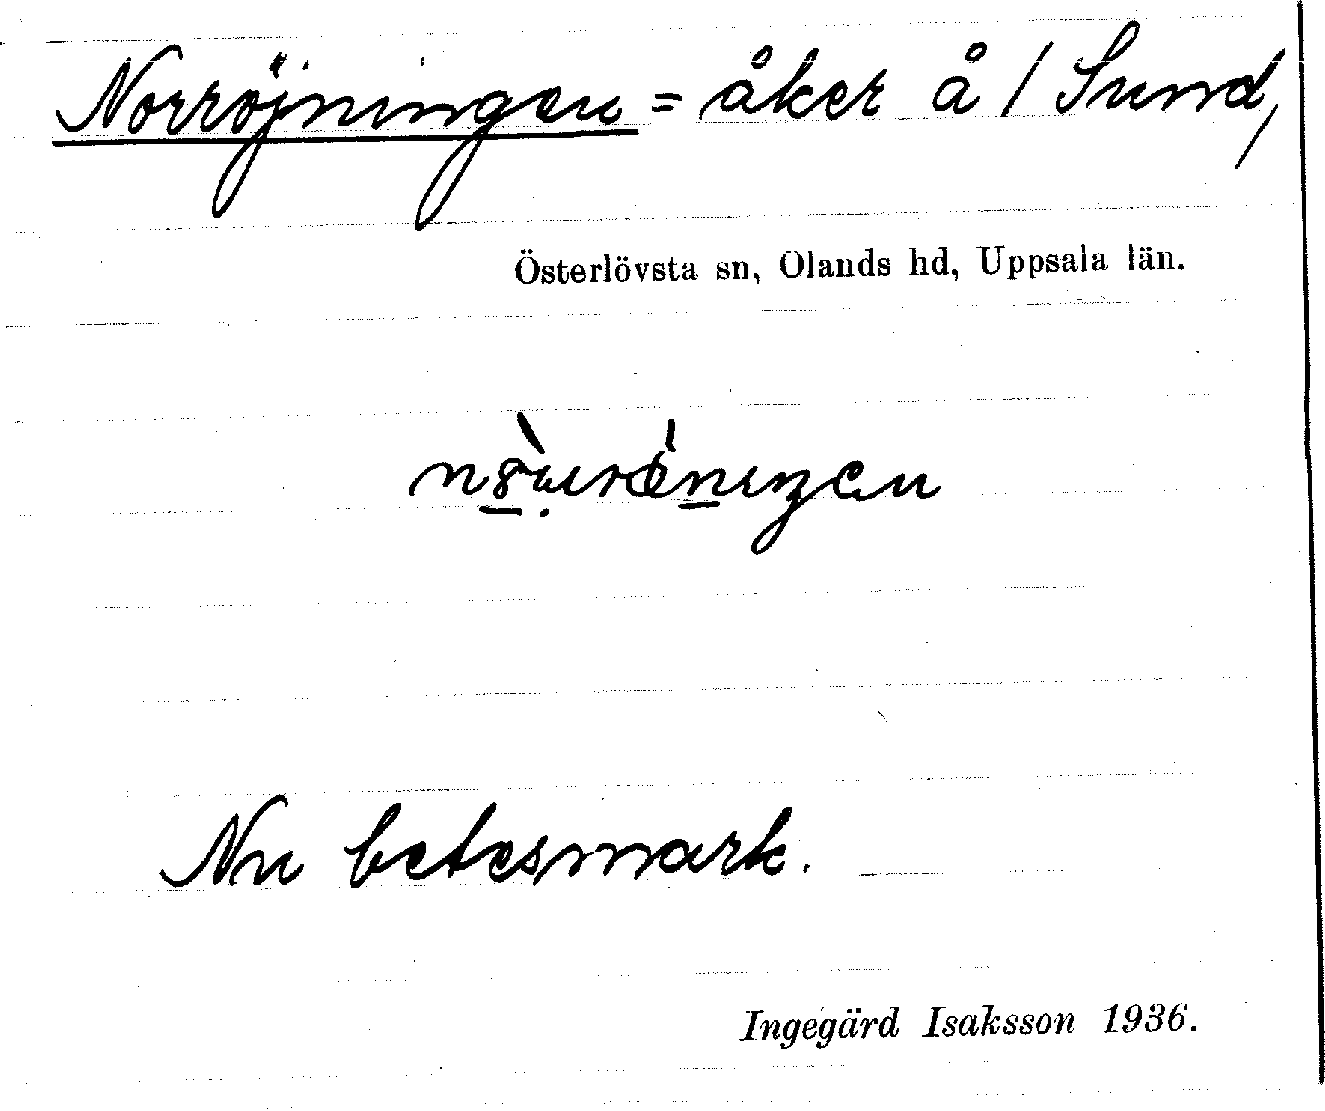 Norröjningen = åker å / Sund,
Österlövsta sn, Olands hd, Uppsala län.
Nu betesmark.
Ingegärd Isaksson 1936.